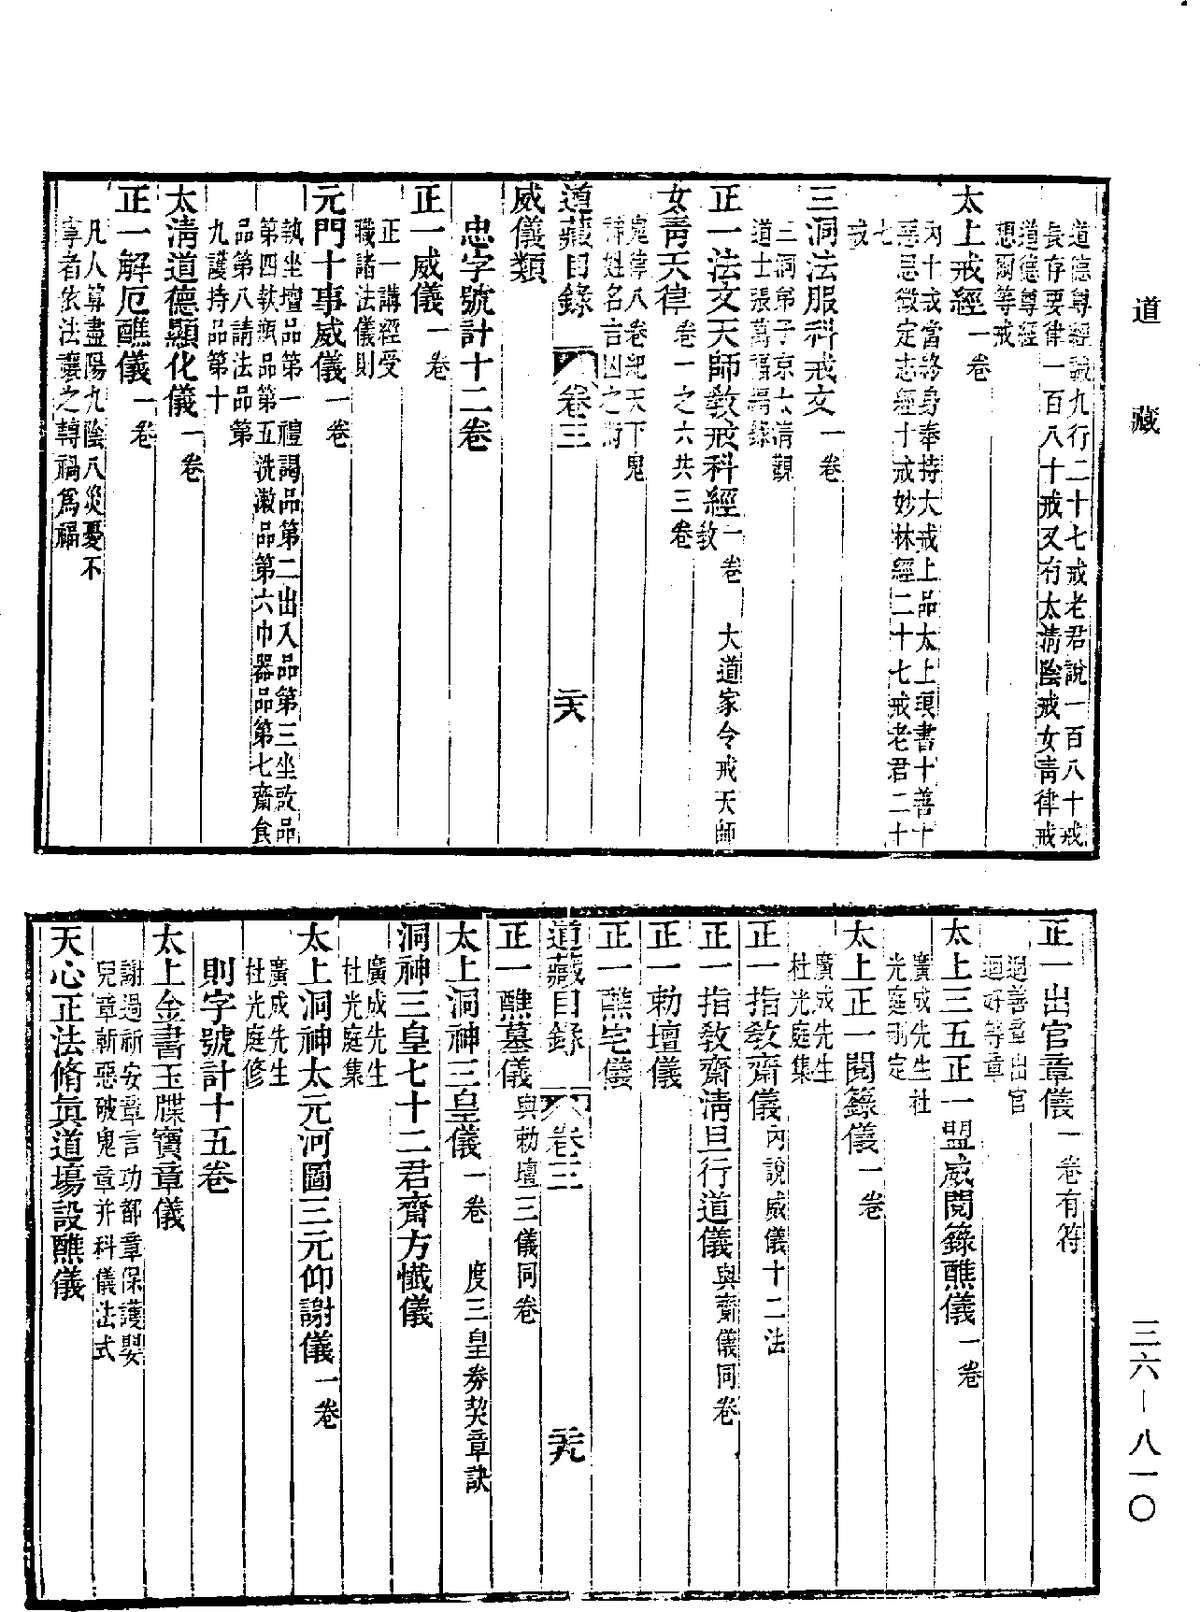 道藏
道德尊經誡九行二十七戒老君說一百八十戒
長存要律一百八十戒又有太清陰戒女青律戒
道德尊經
想爾等戒
太上戒經一卷
內十戒當終身奉持大戒上品太上頊書十善十
惡思微定志經十戒妙林經二十七戒老君二十
七
戒
三洞法服科戒文一卷
三洞弟子京太清觀
道士張萬福編錄
正一法文天師敎戒科經一卷 大道家令戒天師
敎
女青天律卷一之六共三卷
鬼律八卷紀天下鬼
神姓名言凶之財
道藏目錄 卷三 二十八
威儀類
忠字號計十二卷
正一威儀一卷
正一講經受
職諸法儀則
元門十事威儀一卷
執坐壇品第一禮謁品第二出入品第三坐啟品
第四軟瓶品第五洗漱品第六巾器品第七齋食
品第八請法品第
九護持品第十
太清道德顯化儀一卷
正一解厄醮儀一卷
凡人算盡陽九陰八災憂不
享者依法禳之轉禍爲福
正一出官章儀一卷有符
遏善章出官
迴好等章
太上三五正一盟威閱籙醮儀一卷
廣成先生杜
光庭刪定
太上正一閱籙儀一卷
廣成先生
杜光庭集
正一指敎齋儀內說威儀十二法
正一指敎齋清旦行道儀與齋儀同卷
正一勅壇儀
正一醮宅儀
道藏目錄 卷三 二十九
正一醮墓儀與勅壇三儀同卷
太上洞神三皇儀一卷 度三皇券契章訣
洞神三皇七十二君齋方懺儀
廣成先生
杜光庭集
太上洞神太元河圖三元仰謝儀一卷
廣成先生
杜光庭修
則字號計十五卷
太上金書玉牒寶章儀
謝過祈安章言功都章保護嬰
兒章斬惡破鬼章并科儀法式
天心正法脩眞道塲設醮儀
三六－八一〇